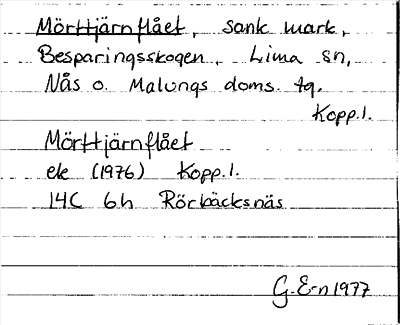 Mörttjärnflået, sank mark,
Besparingsskogen, Lima sn,
Nås o. Malungs doms. tg.
Kopp.l.
Mörttjärnflået
ek (1976) Kopp.l.
14C 6h Rörbäcksnäs
G. E-n 1977